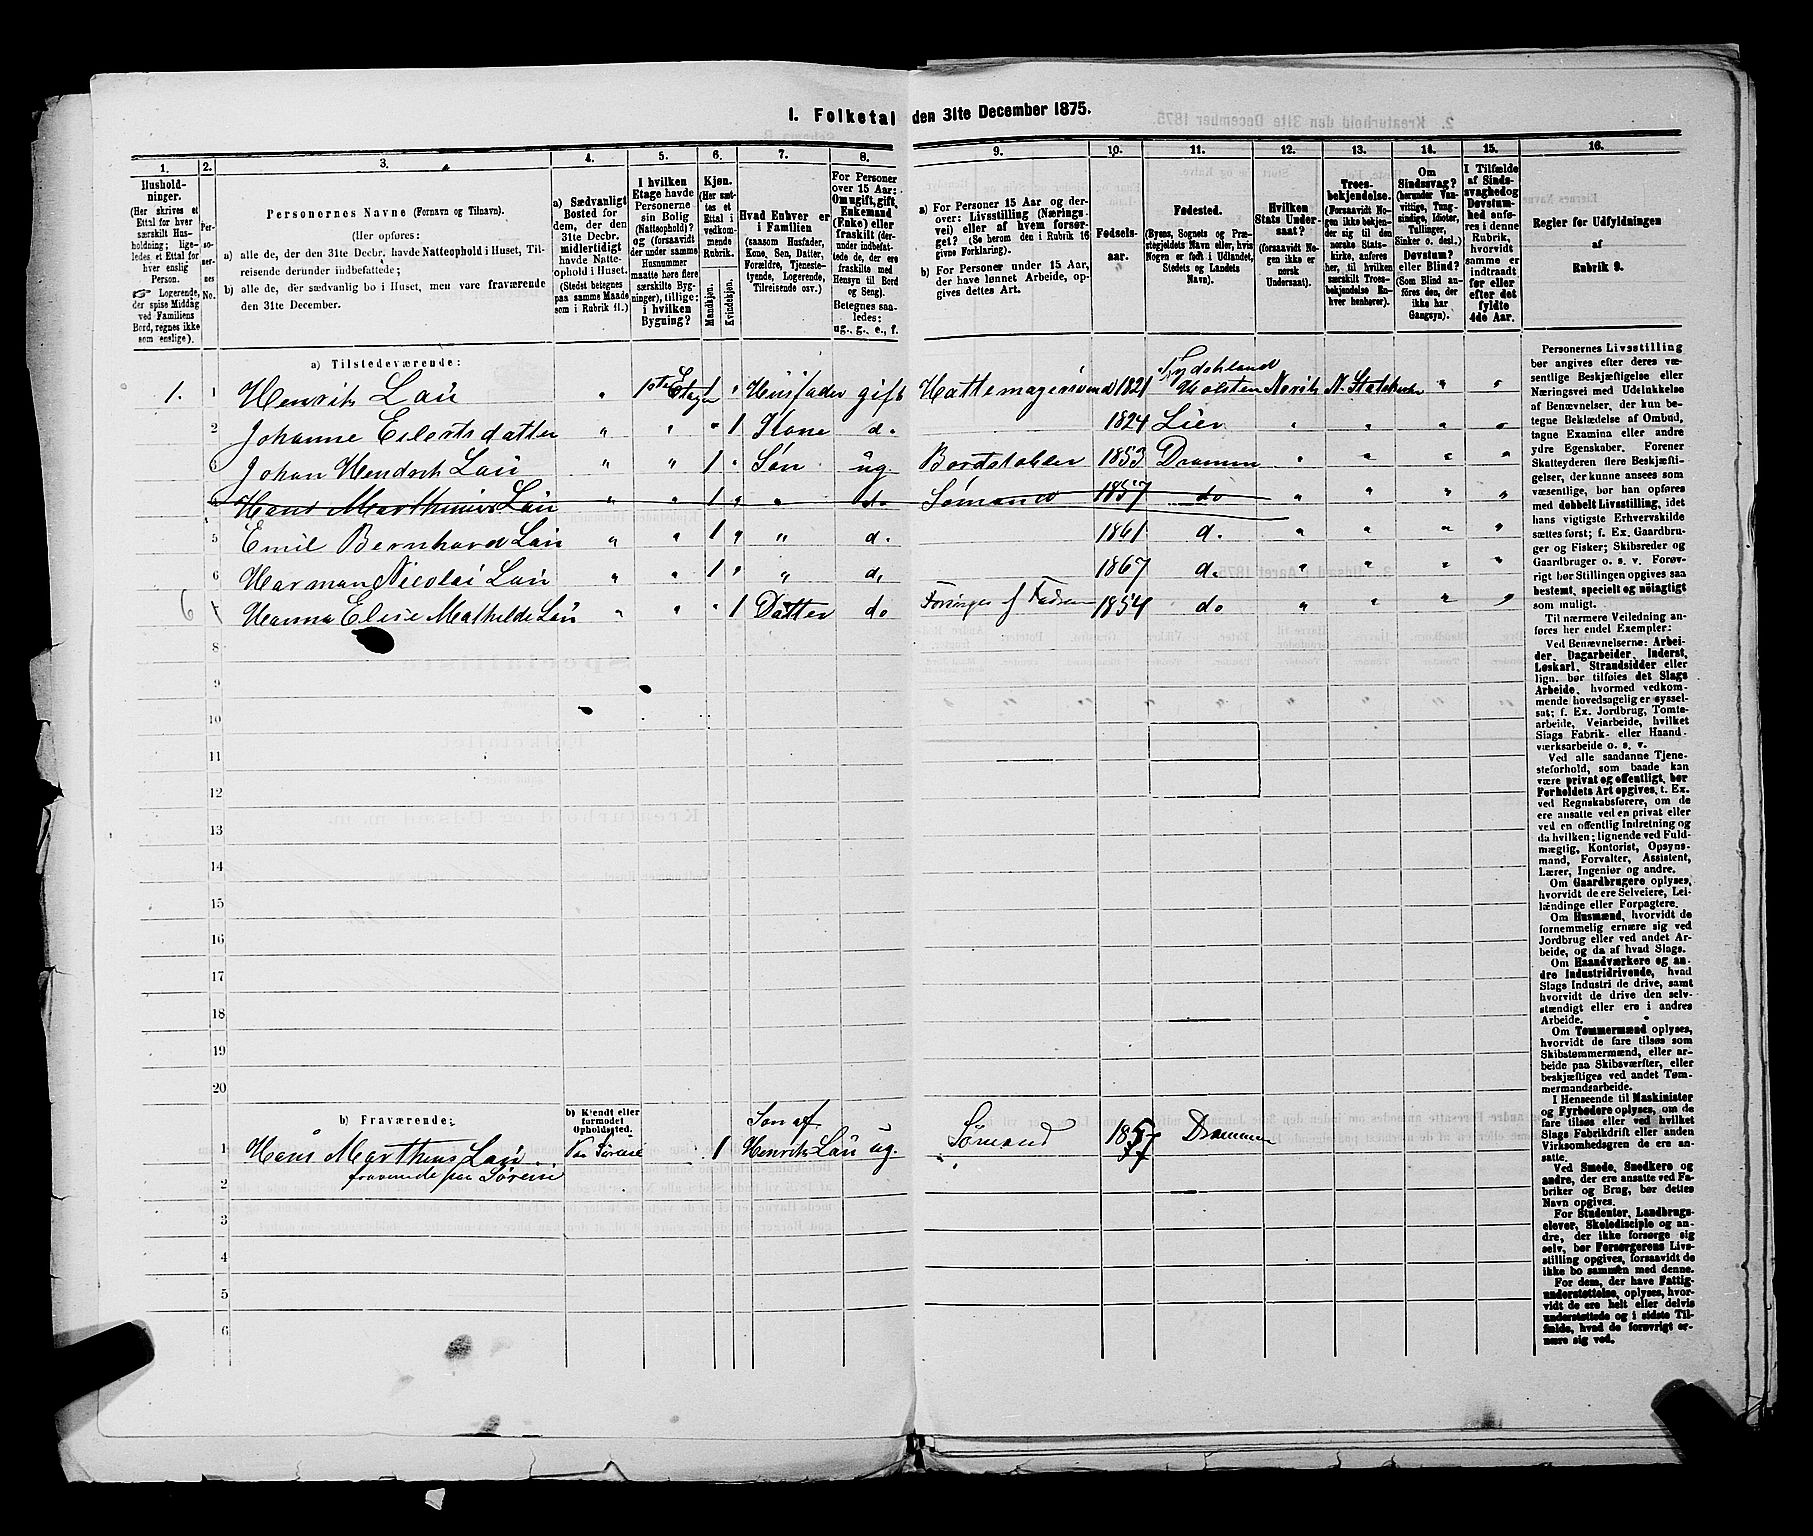 1. Folketal den 31te December 1875.
1.
2.
3.
4.
5.
6.
7.
8.
9.
10.
11.
12.
13.
14.
15.
16.
Hushold-
ninger.
(Her skrives et
Ettal for hver
særskilt Hus-
holdning; lige-
ledes et Ettal for
hver enslig
Person.
☞ Logerende,
der spise Middag
ved Familiens
Bord, regnes ikke
som enslige).
Per-
so-
ner-
nes
No.
Personernes Navne (Fornavn og Tilnavn).
(Her opføres:
a) alle de, der den 31te Decbr. havde Natteophold i Huset, Til-
reisende derunder indbefattede;
b) alle de, der sædvanlig bo i Huset, men vare fraværende
den 31te December.
a) Sædvanligt
Bosted for
dem, der den
31te Decbr.
midlertidigt
havde Natte-
ophold i Huset.
(Stedet betegnes
paa samme Maade
som i Rubrik 11.)
I hvilken
Etage havde
Personerne
sin Bolig
(Natteophold)?
og (forsaavidt
der under samme
Husnummer
maatte høre flere
særskilte Byg-
ninger), tillige:
i hvilken
Bygning?
Kjøn.
(Her sæt-
tes et
Ettal i
vedkom-
mende
Rubrik.
Mandkjøn.
Kvindekjøn.
Hvad Enhver er
i Familien
(saasom Husfader,
Kone, Søn, Datter,
Forældre, Tjeneste-
tyende, Logerende,
Tilreisende osv.)
For Personer
over 15 Aar:
Om ugift, gift,
Enkemand
(Enke) eller
fraskilt (der-
under indbefat-
tede de, der ere
fraskilte med
Hensyn til Bord
og Seng).
Betegnes saa-
ledes:
ug., g., e., f.
a) For Personer 15 Aar og der-
over: Livsstilling (Nærings-
vei) eller af hvem forsør-
get? (Se herom den i Rubrik 16
givne Forklaring).
b) For Personer under 15 Aar,
der have lønnet Arbeide, op-
gives dettes Art.
Fødsels-
aar.
Fødested.
(Byens, Sognets og Præ-
stegjeldets Navn eller, hvis
Nogen er født i Udlandet,
Stedets og Landets
Navn).
Hvilken
Stats Under-
saat?
(forsaavidt No-
gen ikke er
norsk
Undersaat).
Troes-
bekjendelse.
(Forsaavidt No-
gen ikke bekjen-
der sig til den
norske Stats-
kirke, anføres
her, til hvilken
særskilt Troes-
bekjendelse En-
hver henhører).
Om
Sindssvag?
(herunder Van-
vittige, Tung-
sindige, Idioter,
Tullinger,
Sinker o. desl.)
Døvstum?
eller Blind?
(Som Blind an-
føres den, der
ikke har
Gangsyn).
I Tilfælde
af Sinds-
svaghed og
Døvstum-
hed anfø-
res i denne
Rubrik,
hvorvidt
samme er
indtraadt
før eller
efter det
fyldte
4de Aar.
Regler for Udfyldningen
af
Rubrik 9.
a) Tilstedeværende:
1. 1 Henrik Lau „ 1ste Etage 1 „ Husfader gift Hattemagersvend 1821 Tydskland Holsten Norsk N. Statskirke „ „
2 Johanne Eilertsdatter „ „ „ 1 Kone d. 1824 Lier „ „ „ „
3 Johan Hendrich Lau „ „ 1 „ Søn ug. Bordstabler 1853 Dramm „ „ „ „
4 Hans Marthinius Lau „ „ 1 „ „ do Sømand 1857 do „ „ „ „
5 Emil Bernhard Lau „ „ 1 „ „ d. 1861 d. „ „ „ „
6 Harman Nicolai Lau „ „ 1 „ „ d. 1867 d. „ „ „ „
6 7 Hanna Elise Mathilde Lau „ „ „ 1 Datter do Forsørges af Faderen 1854 do „ „ „ „
8
9
10
11
12
13
14
15
16
17
18
19
20
b) Fraværende:
b) Kjendt eller
formodet
Opholdssted.
Søn af
1 Hans Marthins Lau Paa Søreise 1 Henrik Lau ug. Sømand 1857 Drammen
fraværende paa Søreise
2
3
4
5
6
Personernes Livsstilling
bør angives efter deres væ-
sentlige Beskjæftigelse eller
Næringsvei med Udelukkelse
af Benævnelser, der kun be-
tegne Beklædelse af Ombud,
tagne Examina eller andre
ydre Egenskaber. Forener
Skatteyderen flere Beskjæfti-
gelser, der kunne ansees som
væsentlige, bør han opføres
med dobbelt Livsstilling, idet
hans vigtigste Erhvervskilde
sættes først; f. Ex. Gaardbru-
ger og Fisker; Skibsreder og
Gaardbruger o. s. v. Forøv-
rigt bør Stillingen opgives saa
bestemt, specielt og nøiagtigt
som muligt.
Til nærmere Veiledning an-
føres her endel Exempler:
Ved Benævnelserne: Arbei-
der, Dagarbeider, Inderst,
Løskarl, Strandsidder eller
lign. bør tilføies det Slags
Arbeide, hvormed vedkom-
mende hovedsagelig er syssel-
sat; f. Ex. Jordbrug, Tomte-
arbeide, Veiarbeide, hvilket
Slags Fabrik- eller Haand-
værksarbeide o. s. v.
Ved alle saadanne Tjene-
steforhold, som baade kan
være privat og offentligt, bør
Forholdets Art opgives, t. Ex.
ved Regnskabsførere, om de
ere ansatte ved en privat eller
ved en offentlig Indretning og
da hvilken; lignende ved Fuld-
mægtig, Kontorist, Opsyns-
mand, Forvalter, Assistent,
Lærer, Ingeniør og andre.
Om Gaardbrugere oplyses,
hvorvidt de ere Selveiere, Lei-
lændinge eller Forpagtere.
Om Husmænd, hvorvidt de
fornemmelig ernære sig ved
Jordbrug eller ved andet Ar-
beide, og da af hvad Slags.
Om Haandværkere og an-
dre Industridrivende, hvad
Slags Industri de drive, samt
hvorvidt de drive den selv-
stændigt eller ere i andres
Arbeide.
Om Tømmermænd oplyses,
hvorvidt de fare tilsøs som
Skibstømmermænd, eller ar-
beide paa Skibsværfter, eller
beskjæftiges ved andet Tøm-
mermandsarbeide.
I Henseende til Maskinister
og Fyrbødere oplyses, om de
fare tilsøs eller ved hvilket
Slags Fabrikdrift eller anden
Virksomhedsgren de ere an-
satte.
Ved Smede, Snedkere og
andre, der ere ansatte ved Fa-
briker og Brug, bør dettes
Navn opgives.
For Studenter, Landbrugs-
elever, Skoledisciple og an-
dre, der ikke forsørge sig
selv, bør Forsørgerens Livs-
stilling opgives, forsaavidt de
ikke bo sammen med denne.
For dem, der have Fattig-
understøttelse, oplyses, hvor-
vidt de ere helt eller delvis
understøttede og i sidste Til-
fælde, hvad de forøvrigt er-
nære sig ved.